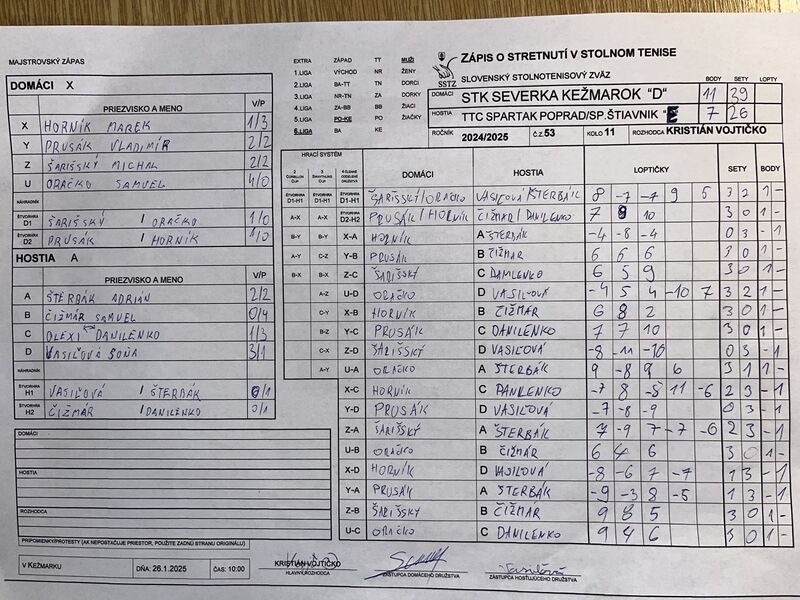 MAJSTROVSKÝ ZÁPAS
DOMÁCI X
PRIEZVISKO A MENO V/P
X HORNÍK MAREK 1/3
Y PRUSÁK VLADIMÍR 2/2
Z ŠARIŠSKÝ MICHAL 2/2
U ORAČKO SAMUEL 4/0
NÁHRADNÍK
ŠTVORHRA D1 ŠARIŠSKÝ / ORAČKO 1/0
ŠTVORHRA D2 PRUSÁK / HORNÍK 1/0
HOSTIA A
PRIEZVISKO A MENO V/P
A ŠTERBÁK ADRIÁN 2/2
B ČIŽMÁR SAMUEL 0/4
C OLEXI DANILENKO 1/3
D VASIĽOVÁ SOŇA 3/1
NÁHRADNÍK
ŠTVORHRA H1 VASIĽOVÁ / ŠTERBÁK 0/1
ŠTVORHRA H2 ČIŽMÁR / DANILENKO 0/1
DOMÁCI
HOSTIA
ROZHODCA
PRIPOMIENKY/PROTESTY (AK NEPOSTAČUJE PRIESTOR, POUŽITE ZADNÚ STRANU ORIGINÁLU)
EXTRA ZÁPAD TT MUŽI
1.LIGA VÝCHOD NR ŽENY
2.LIGA BA-TT TN DORCI
3.LIGA NR-TN ZA DORKY
4.LIGA ZA-BB BB ŽIACI
5.LIGA PO-KE PO ŽIAČKY
6.LIGA BA KE
SSTZ
ZÁPIS O STRETNUTÍ V STOLNOM TENISE
SLOVENSKÝ STOLNOTENISOVÝ ZVÄZ
BODY SETY LOPTY
DOMÁCI STK SEVERKA KEŽMAROK "D" 11 39
HOSTIA TTC SPARTAK POPRAD/SP.ŠTIAVNIK "E 7 26
ROČNÍK 2024/2025 Č.Z. 53 KOLO 11 ROZHODCA KRISTIÁN VOJTIČKO
HRACÍ SYSTÉM
2 CORBILLON CUP 3 SWAYTHLING CUP 4 ČLENNÉ ODDELENÉ DRUŽSTVÁ DOMÁCI HOSTIA LOPTIČKY SETY BODY
ŠTVORHRA D1-H1 ŠTVORHRA D1-H1 ŠTVORHRA D1-H1 ŠARIŠSKÝ/ORAČKO VASIĽOVÁ/ŠTERBÁK 8 -7 -7 9 5 3 2 1 -
A-X A-X ŠTVORHRA D2-H2 PRUSÁK/HORNÍK ČIŽMÁR/DANILENKO 7 9 10 3 0 1 -
B-Y B-Y X-A HORNÍK A ŠTERBÁK -4 -8 -4 0 3 - 1
A-Y C-Z Y-B PRUSÁK B ČIŽMÁR 6 6 6 3 0 1 -
B-X B-X Z-C ŠARIŠSKÝ C DANILENKO 6 5 9 3 0 1 -
A-Z U-D ORAČKO D VASIĽOVÁ -4 5 4 -10 7 3 2 1 -
C-Y X-B HORNÍK B ČIŽMÁR 6 8 2 3 0 1 -
B-Z Y-C PRUSÁK C DANILENKO 7 7 10 3 0 1 -
C-X Z-D ŠARIŠSKÝ D VASIĽOVÁ -8 -11 -10 0 3 - 1
A-Y U-A ORAČKO A ŠTERBÁK 9 -8 9 6 3 1 1 -
X-C HORNÍK C DANILENKO -7 8 -8 11 -6 2 3 - 1
Y-D PRUSÁK D VASIĽOVÁ -7 -8 -9 0 3 - 1
Z-A ŠARIŠSKÝ A ŠTERBÁK 7 -9 7 -7 -6 2 3 - 1
U-B ORAČKO B ČIŽMÁR 6 4 6 3 0 1 -
X-D HORNÍK D VASIĽOVÁ -8 -6 7 -7 1 3 - 1
Y-A PRUSÁK A ŠTERBÁK -9 -3 8 -5 1 3 - 1
Z-B ŠARIŠSKÝ B ČIŽMÁR 9 8 5 3 0 1 -
U-C ORAČKO C DANILENKO 9 4 6 3 0 1 -
V KEŽMARKU DŇA: 26.1.2025 ČAS: 10:00
KRISTIÁN VOJTIČKO
HLAVNÝ ROZHODCA
ZÁSTUPCA DOMÁCEHO DRUŽSTVA
Vasiľová
ZÁSTUPCA HOSŤUJÚCEHO DRUŽSTVA